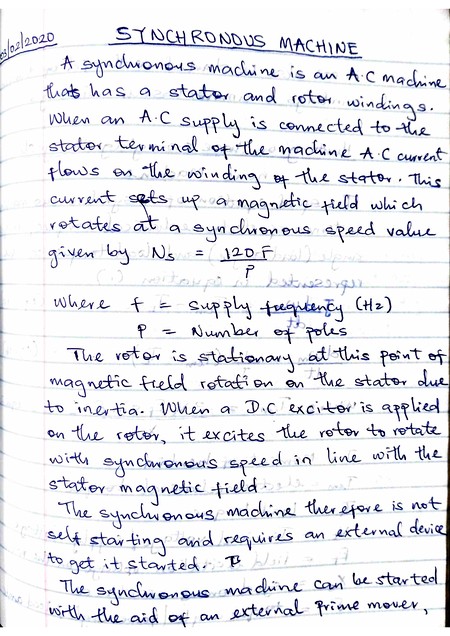 03/02/2020
SYNCHRONOUS MACHINE
A synchronous machine is an A.C machine
that has a stator and rotor windings.
When an A.C supply is connected to the
stator terminal of the machine A.C current
flows on the winding of the stator. This
current sets up a magnetic field which
rotates at a synchronous speed value
given by Ns = 120F/P
Where f = supply frequency (Hz)
P = Number of poles
The rotor is stationary at this point of
magnetic field rotation on the stator due
to inertia. When a D.C excitor is applied
on the rotor, it excites the rotor to rotate
with synchronous speed in line with the
stator magnetic field.
The synchronous machine therefore is not
self starting and requires an external device
to get it started.
The synchronous machine can be started
with the aid of an external prime mover,